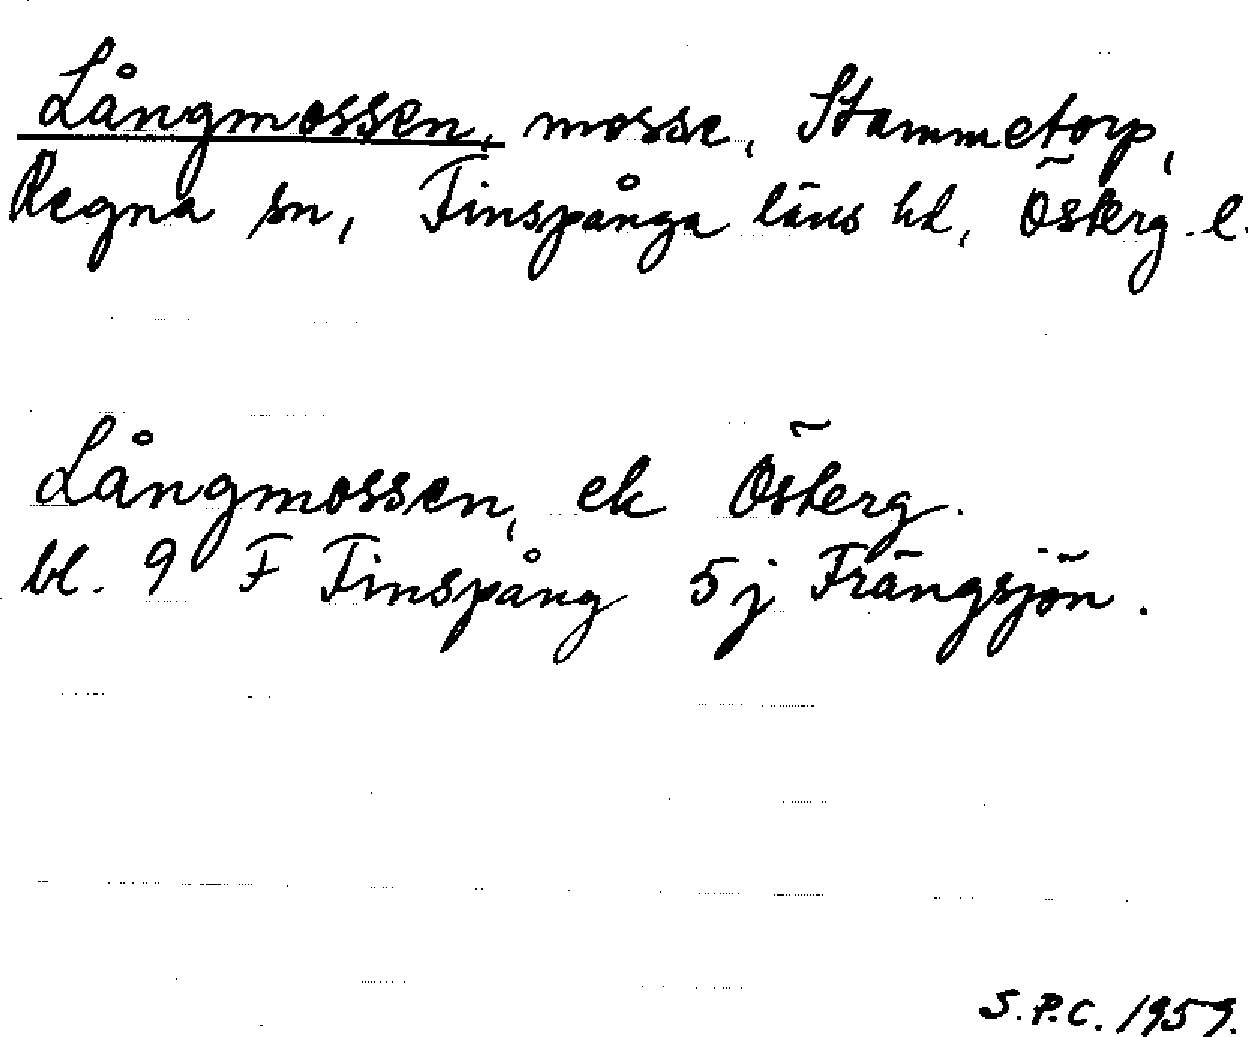 Långmossen, mosse, Stammetorp,
Regna sn, Finspånga läns hd, Österg. l.
Långmossen, ek Österg.
bl. 9 F Finspång 5 j Frängsjön.
S.P.C. 1959.